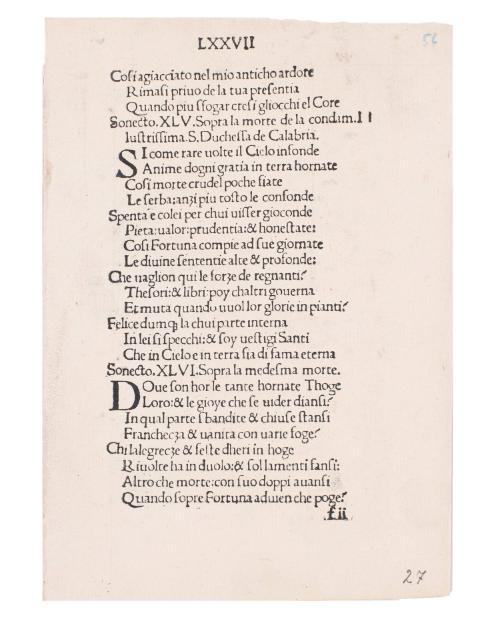 LXXVII
56
Cosi agiacciato nel mio anticho ardore
Rimasi priuo de la tua presentia
Quando piu sfogar cresi gliocchi el Core
Sonecto. XLV. Sopra la morte de la condam. Il
lustrissima. S. Duchessa de Calabria.
SI come rare uolte il Cielo infonde
Anime dogni gratia in terra hornate
Cosi morte crudel poche fiate
Le serba: anzi piu tosto le confonde
Spenta e colei per chui uisser gioconde
Pieta: ualor: prudentia: & honestate:
Cosi Fortuna compie ad sue giornate
Le diuine sententie alte & profonde:
Che uaglion qui le forze de regnanti?
Thesori: & libri: poy chaltri gouerna
Et muta quando uuol lor glorie in pianti?
Felice dumq; la chui parte interna
In lei si specchi: & soy uestigi Santi
Che in Cielo e in terra sia di fama eterna
Sonecto. XLVI. Sopra la medesma morte.
DOue son hor le tante hornate Thoge
Loro: & le gioye che se uider diansi?
In qual parte sbandite & chiuse stansi
Franchecza & uanita con uarie foge?
Chi lalegrecze & feste dheri in hoge
Riuolte ha in duolo: & sol lamenti fansi:
Altro che morte: con suo doppi auansi
Quando sopre Fortuna aduien che poge?
fii
27